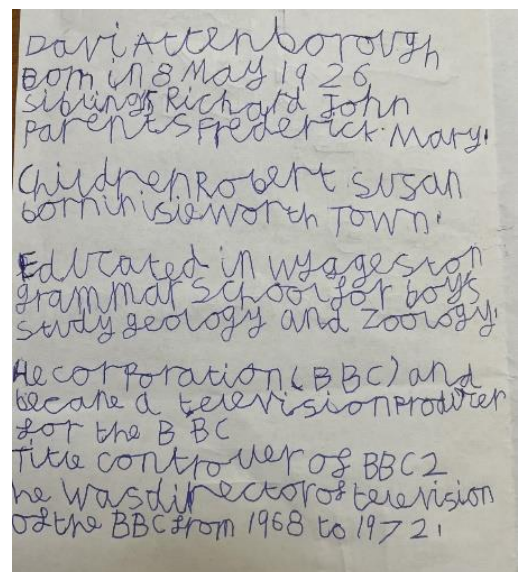 Davi Attenborough
Born in 8 May 1926
siblings Richard John
parents Frederick. Mary.
Children Robert Susan
born in isleworth Town.
Educated in wyggeston
grammar School for boys
study geology and Zoology.
He corporation (BBC) and
became a television producer
for the BBC
Title controller of BBC2
he was director of television
of the BBC from 1968 to 1972.